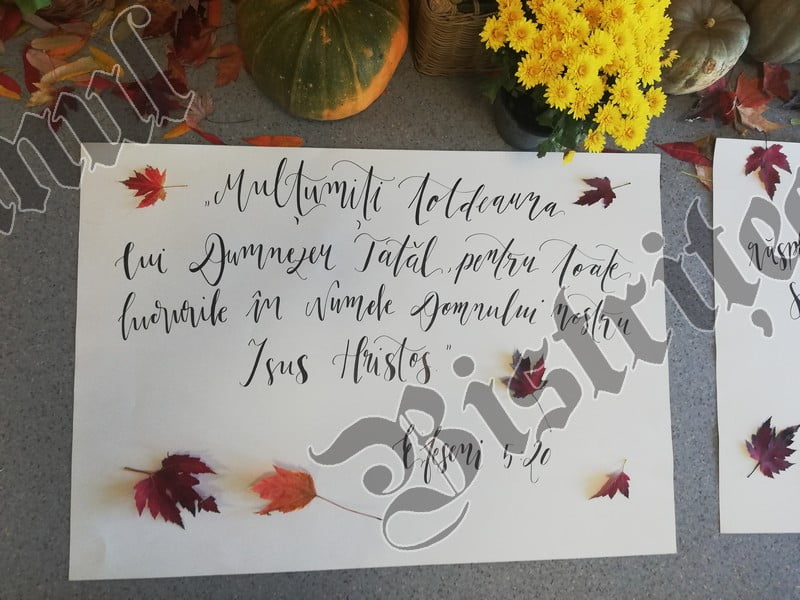 „Mulțumiți totdeauna
lui Dumnezeu Tatăl, pentru toate
lucrurile în Numele Domnului nostru
Isus Hristos."
Efeseni 5:20
răsp
Bistrițe